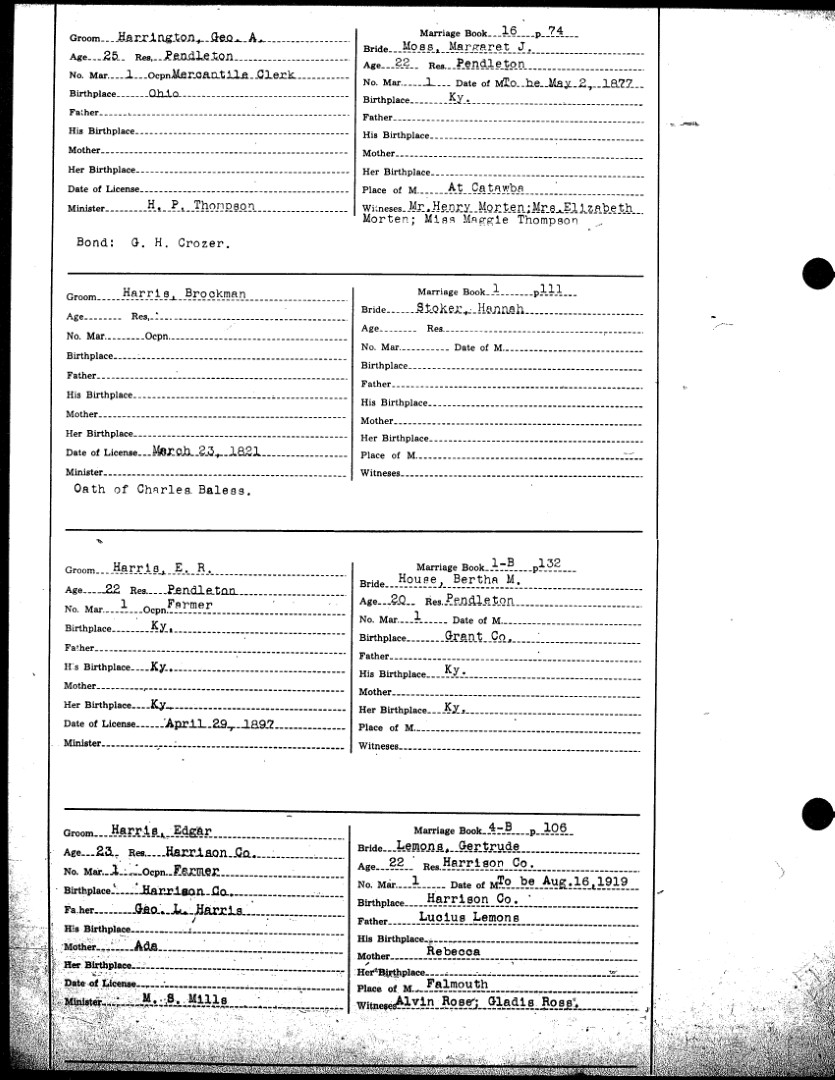 Groom Harrington, Geo. A.
Age 25 Res. Pendleton
No. Mar. 1 Ocpn. Mercantile Clerk
Birthplace Ohio
Father
His Birthplace
Mother
Her Birthplace
Date of License
Minister H. P. Thompson
Bond: G. H. Crozer.
Marriage Book 16 p 74
Bride Moss, Margaret J.
Age 22 Res. Pendleton
No. Mar. 1 Date of M To be May 2, 1877
Birthplace Ky.
Father
His Birthplace
Mother
Her Birthplace
Place of M. At Catawba
Witnesses Mr. Henry Morten; Mrs. Elizabeth
Morten; Miss Maggie Thompson
Groom Harris, Brockman
Age Res.
No. Mar. Ocpn.
Birthplace
Father
His Birthplace
Mother
Her Birthplace
Date of License March 23, 1821
Minister
Oath of Charles Baless.
Marriage Book 1 p111
Bride Stoker, Hannah
Age Res.
No. Mar. Date of M.
Birthplace
Father
His Birthplace
Mother
Her Birthplace
Place of M.
Witnesses
Groom Harris, E. R.
Age 22 Res. Pendleton
No. Mar. 1 Ocpn. Farmer
Birthplace Ky.
Father
His Birthplace Ky.
Mother
Her Birthplace Ky.
Date of License April 29, 1897
Minister
Marriage Book 1-B p132
Bride House, Bertha M.
Age 20 Res. Pendleton
No. Mar. 1 Date of M.
Birthplace Grant Co.
Father
His Birthplace Ky.
Mother
Her Birthplace Ky.
Place of M.
Witnesses
Groom Harris, Edgar
Age 23 Res. Harrison Co.
No. Mar. 1 Ocpn. Farmer
Birthplace Harrison Co.
Father Geo. L. Harris
His Birthplace
Mother Ada
Her Birthplace
Date of License
Minister M. S. Mills
Marriage Book 4-B p. 106
Bride Lemons, Gertrude
Age 22 Res. Harrison Co.
No. Mar. 1 Date of M To be Aug. 16, 1919
Birthplace Harrison Co.
Father Lucius Lemons
His Birthplace
Mother Rebecca
Her Birthplace
Place of M. Falmouth
Witnesses Alvin Rose; Gladis Ross.